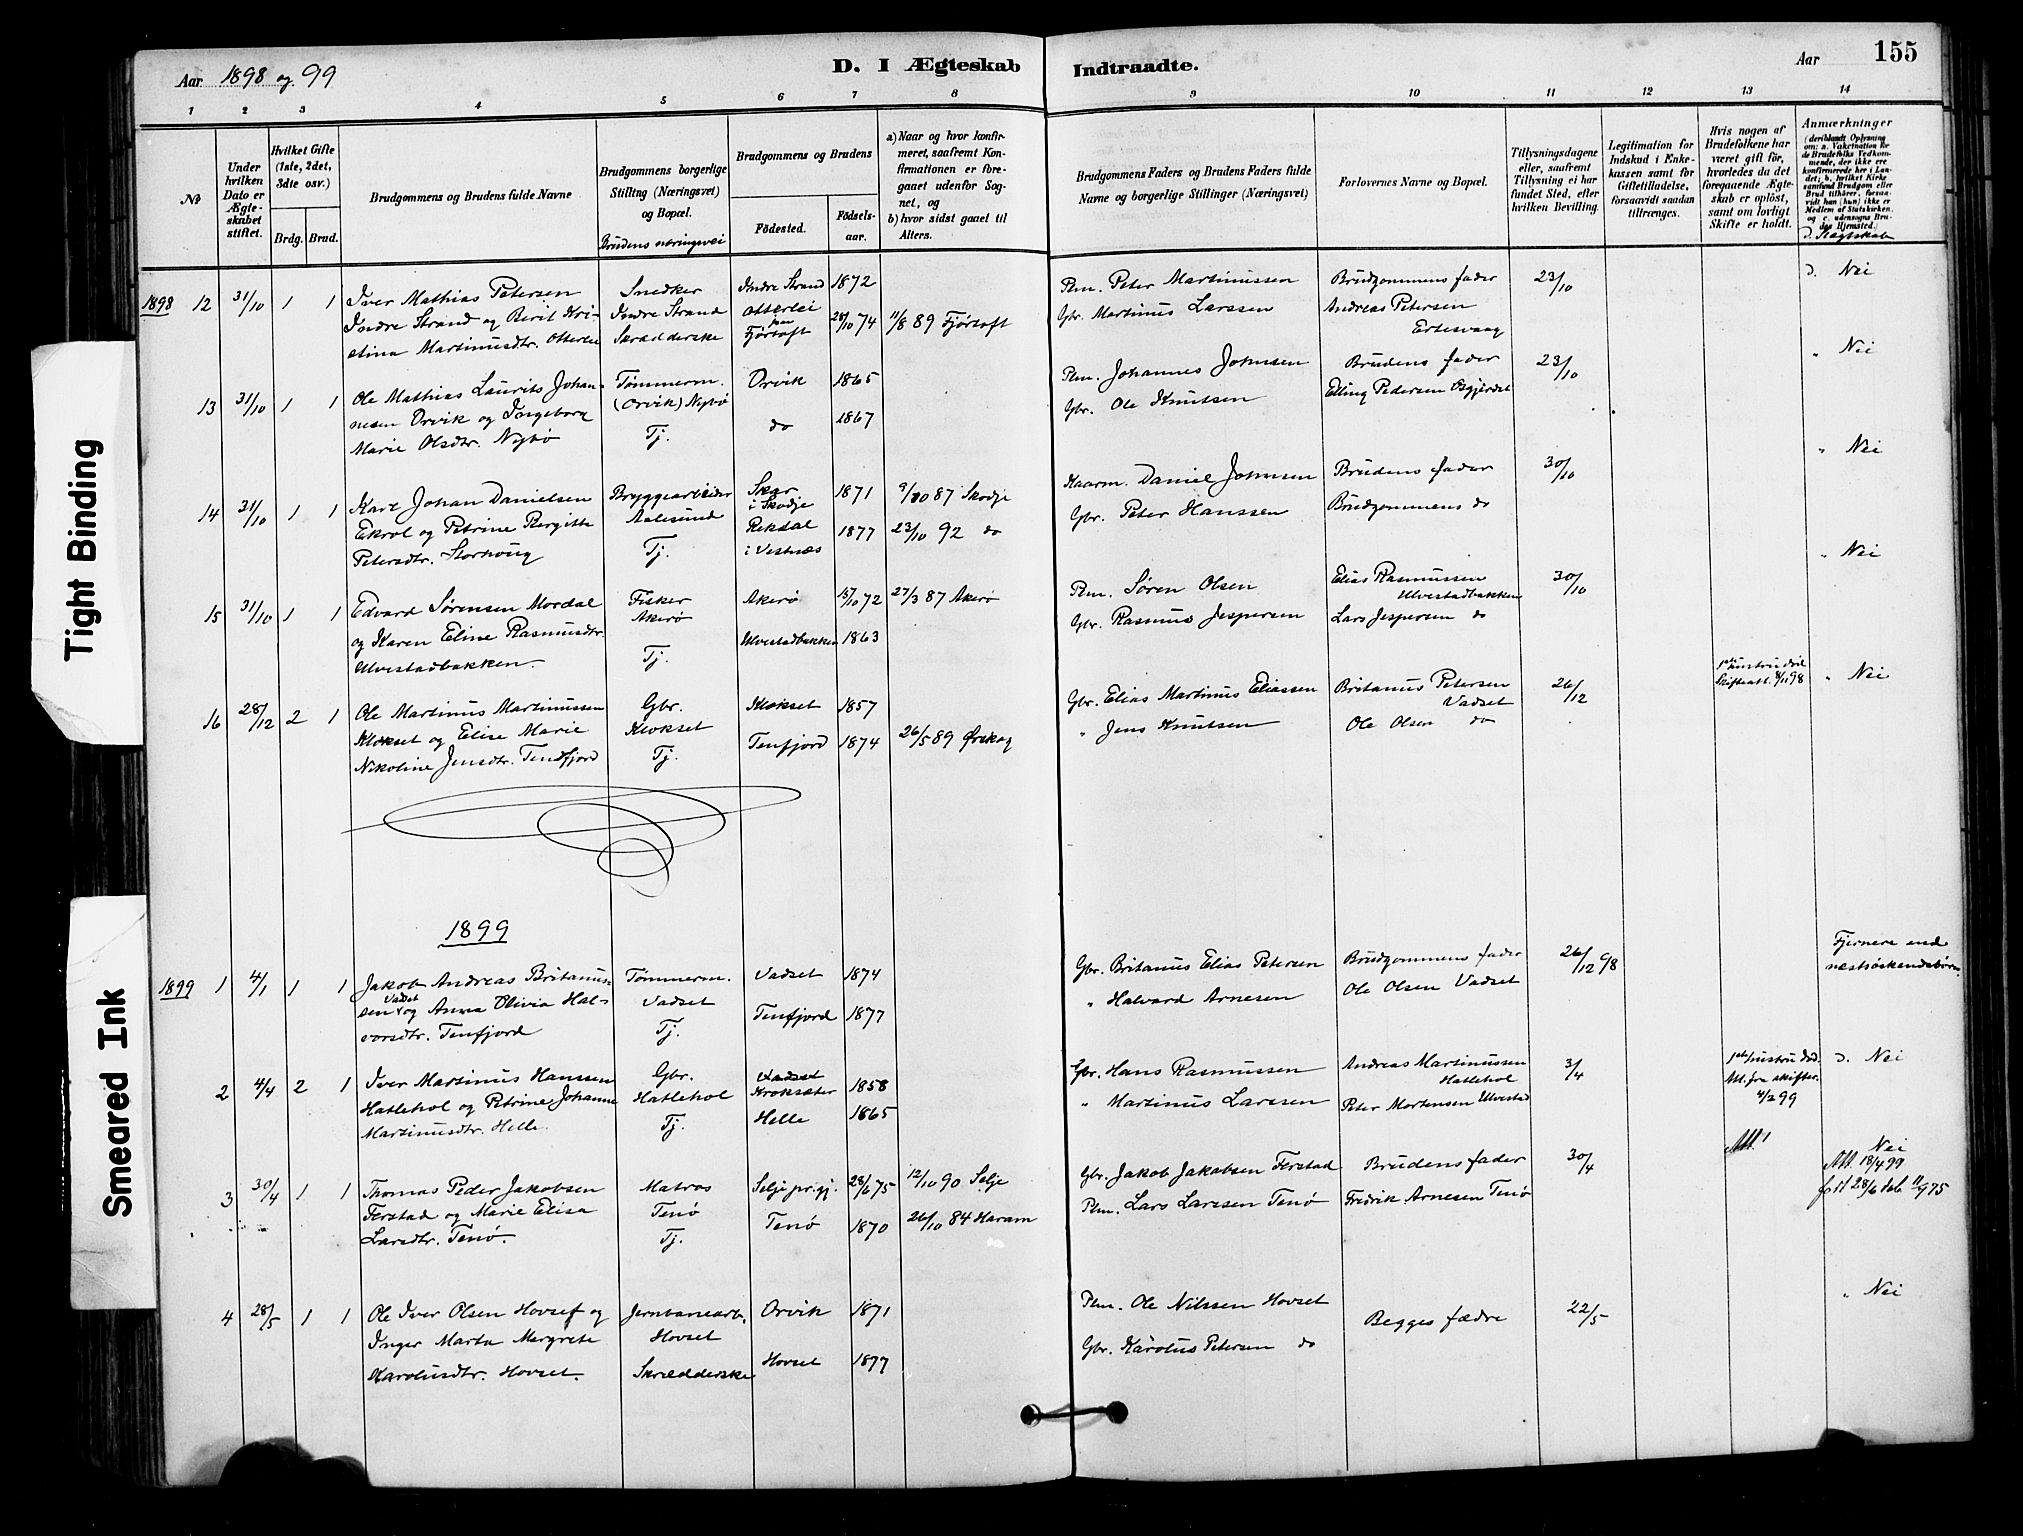 Aar 1898 og 99
D. I Ægteskab Indtraadte.
Aar 155
1 2 3 4 5 6 7 8 9 10 11 12 13 14
No
Under hvilken Dato er Ægteskabet stiftet.
Hvilket Gifte (1ste, 2det, 3die osv.)
Brdg. Brud.
Brudgommens og Brudens fulde Navne
Brudgommens borgerlige Stilling (Næringsvei) og Bopæl.
Brudens næringsvei
Brudgommens og Brudens
Fødested.
Fødselsaar.
a) Naar og hvor konfirmeret, saafremt Konfirmationen er foregaaet udenfor Sognet, og
b) hvor sidst gaaet til Alters.
Brudgommens Faders og Brudens Faders fulde Navne og borgerlige Stillinger (Næringsvei)
Forlovernes Navne og Bopæl.
Tillysningsdagene eller, saafremt Tillysning ei har fundet Sted, efter hvilken Bevilling.
Legitimation for Indskud i Enkekassen samt for Giftetilladelse, forsaavidt saadan tiltrenges.
Hvis nogen af Brudefolkene har været gift før, hvorledes da det foregaaende Ægteskab er opløst, samt om lovligt Skifte er holdt.
Anmærkninger
(deriblandt Oplysning om: a. Vakcination for de Brudefolks Vedkommende, der ikke ere konfirmerede her i Landet; b. hvilket Kirkesamfund Brudgom eller Brud tilhører, forsaavidt han (hun) ikke er Medlem af Statskirken, og c. udensogns Brudes Hjemsted.)
d. Slægtskab
1898 12 31/10 1 1
Iver Mathias Petersen
Indre Strand og Berit Kri-
stina Martinusdtr. Otterlei
Snedker
Indre Strand
Skrædderske
Indre Strand 1872
Otterlei
paa
Fjørtoft 28/10 74 11/8 89 Fjørtoft
Plm. Peter Martinussen
Gbr. Martinus Larssen
Brudgommens fader
Andreas Petersen
Ertesvaag
23/10
d. Nei
13 31/10 1 1
Ole Mathias Laurits Johan-
nesen Orvik og Ingeborg
Marie Olsdtr. Nybø
Tømmerm.
(Orvik) Nybø
Tj.
Orvik 1865
do 1867
Plm. Johannes Johnsen
Gbr. Ole Knutsen
Brudens fader
Elling Pedersen Osgjerdet
23/10
" Nei
14 31/10 1 1
Karl Johan Danielsen
Ekrol og Petrine Bergitte
Petersdtr. Storhoug
Bryggearbeider
Aalesund
Tj.
Skar
i Skodje 1871 9/10 87 Skodje
Rekdal
i Vestnæs 1877 23/10 92 do
Kaarm. Daniel Johnsen
Gbr. Peter Hanssen
Brudens fader
Brudgommens do
30/10
" Nei
15 31/10 1 1
Edvard Sørensen Mordal
og Karen Eline Rasmusdtr.
Ulvestadbakken.
Fisker
Akerø
Tj.
Akerø 15/10 72 27/3 87 Akerø
Ulvestadbakken 1863
Plm. Søren Olsen
Gbr. Rasmus Jespersen
Elias Rasmussen
Ulvestadbakken
Lars Jespersen do
30/10
" Nei
16 28/12 2 1
Ole Martinus Martinussen
Klokset og Elise Marie
Nikoline Jensdtr. Tendfjord
Gbr.
Klokset
Tj.
Klokset 1857
Tenfjord 1874 26/5 89 Ørskog
Gbr. Elias Martinus Eliassen
" Jens Knutsen
Britanus Petersen
Vadset
Ole Olsen do
26/12
1ste hustru død
Skifteatt. 8/11 98
" Nei
1899
1899 1 4/1 1 1
Jakob Andreas Britanus-
sen Vadset og Anna Olivia Hal-
vorsdtr. Tenfjord
Tømmerm.
Vadset
Tj.
Vadset 1874
Tenfjord 1877
Gbr. Britanus Elias Petersen
" Halvard Arnesen
Brudgommens fader
Ole Olsen Vadset
26/12 98
Fjernere end
næstsøskendebørn
2 4/4 2 1
Iver Martinus Hanssen
Hatlehol og Petrine Johanne
Martinusdtr. Helle.
Gbr.
Hatlehol
Tj.
Vadset
Kroksæter 1858
Helle 1865
Gbr. Hans Rasmussen
" Martinus Larssen
Andreas Martinussen
Hatlehol
Peter Mortensen Ulvestad
3/4
1ste hustru død.
Att. fra skifter.
4/2 99
d. Nei
3 30/4 1 1
Thomas Peder Jakobsen
Ferstad og Marie Elisa
Larsdtr. Tenø.
Matros
Tenø
Tj.
Selje prgj. 28/6 75 12/10 90 Selje
Tenø 1870 26/10 84 Haram
Gbr. Jakob Jakobsen Ferstad
Plm. Lars Larssen Tenø
Brudens fader
Fredrik Arnesen Tenø
30/4
Att.
Nei
Att. 18/4 99
født 28/6 døb 11/9 75
4 28/5 1 1
Ole Iver Olsen Hovset og
Inger Marta Margrete
Karolusdtr. Hovset.
Jernbanearb.
Hovset
Skrædderske
Orvik 1871
Hovset 1877
Plm. Ole Nilssen Hovset
Gbr. Karolus Petersen do
Begges fædre
22/5
" Nei
Tight Binding
Smeared Ink